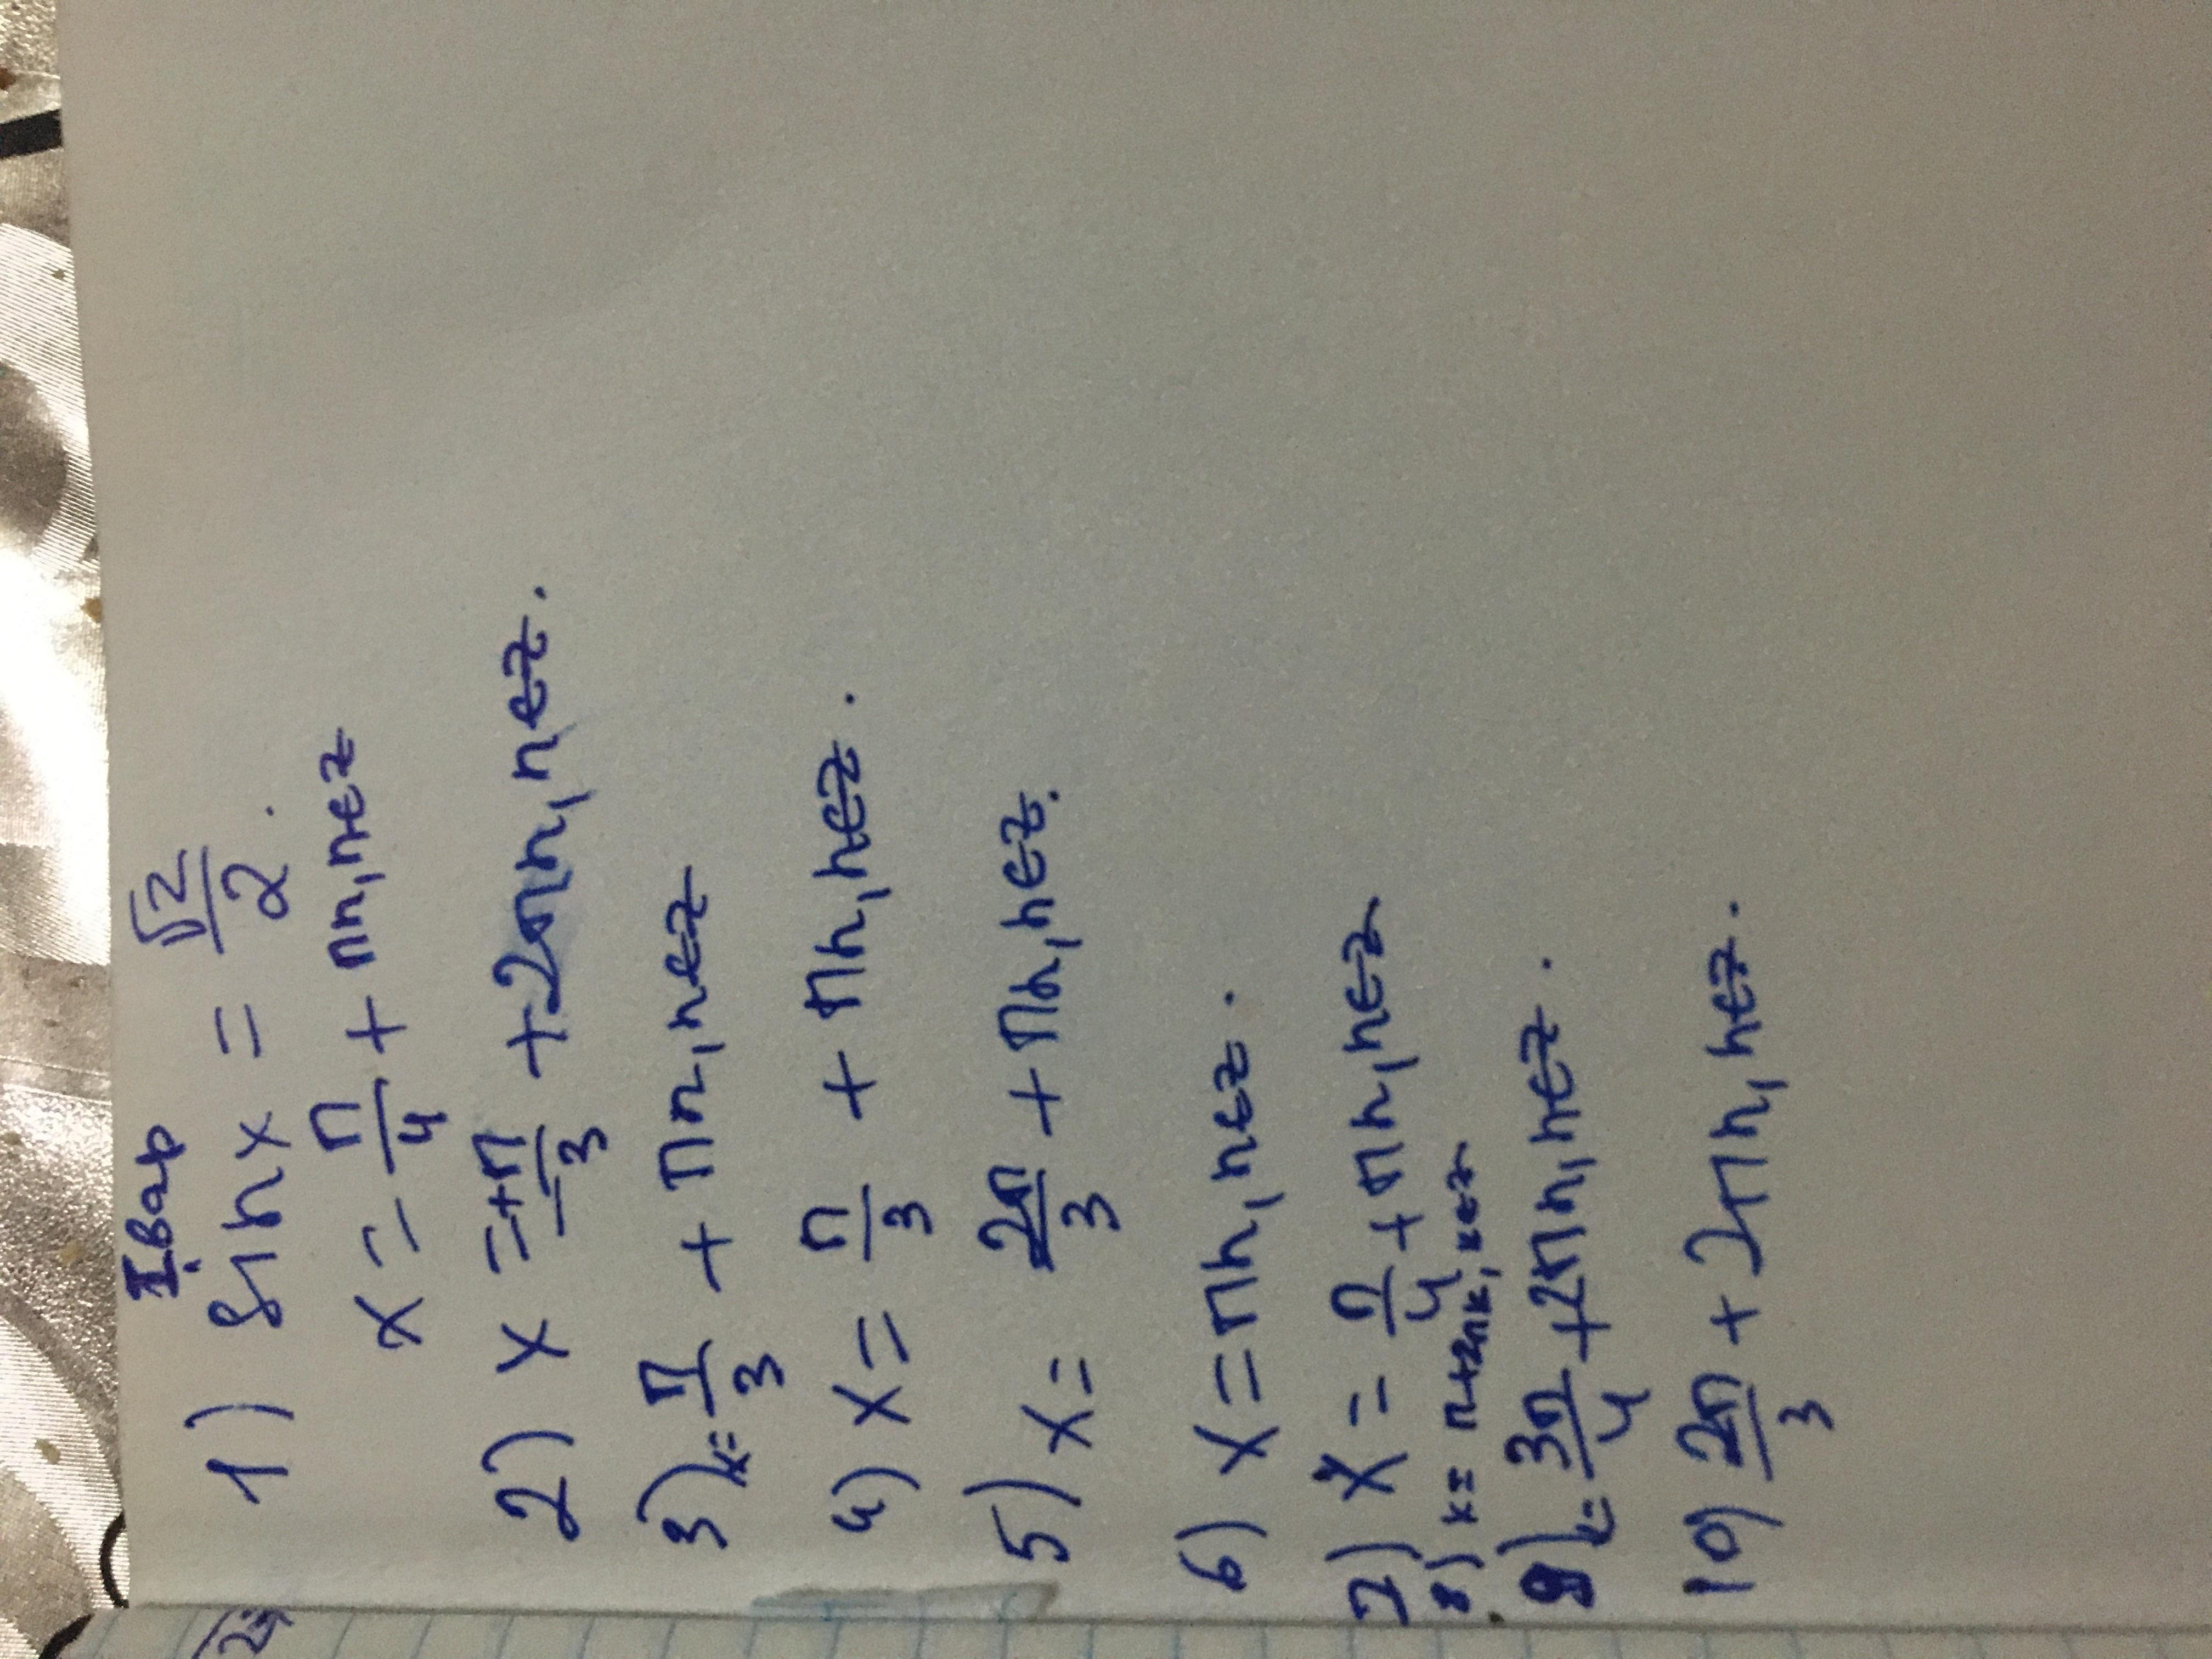 I вар
1) sin x = √2/2.
x = π/4 + πn, n∈Z
2) x = ±π/3 + 2πn, n∈Z.
3) x = π/3 + πn, n∈Z
4) x = π/3 + πn, n∈Z.
5) x = 2π/3 + πn, n∈Z.
6) x = πn, n∈Z.
7) x = π/4 + πn, n∈Z
8) x = π+2πk, k∈Z
9) x = 3π/4 + 2πn, n∈Z.
10) 2π/3 + 2πn, n∈Z.